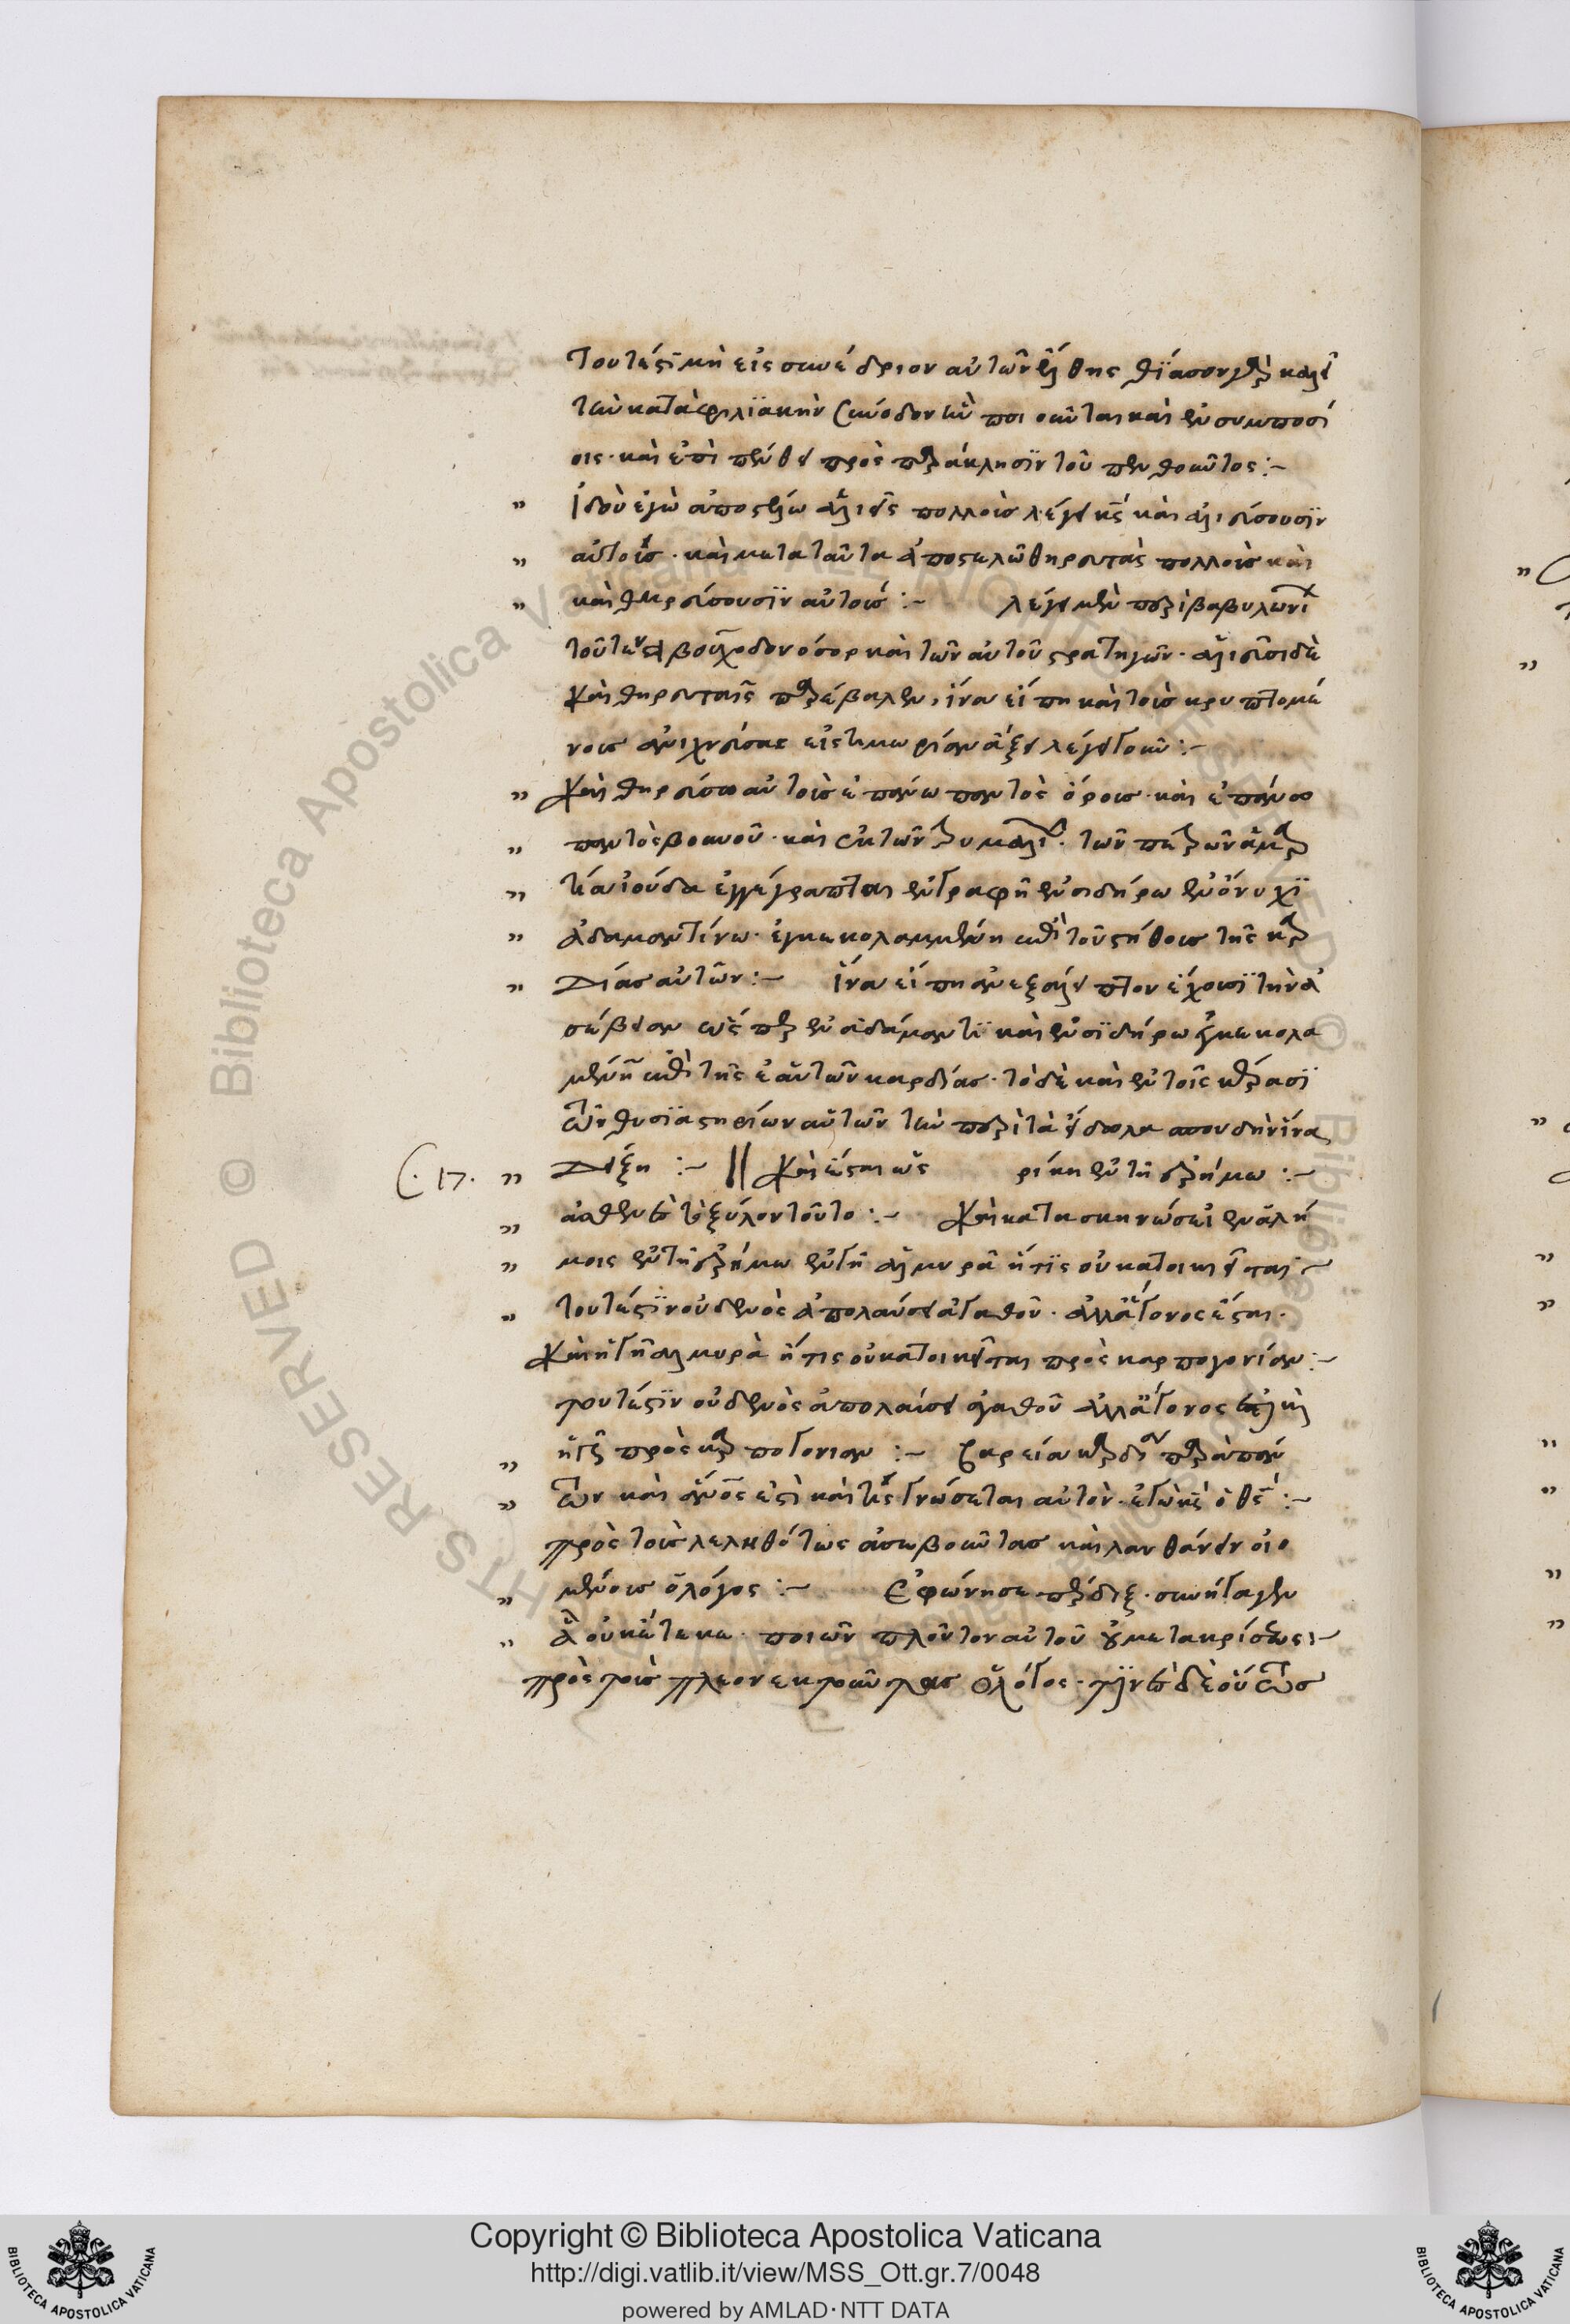 Τουτέστι μὴ εἰς συνέδριον αὐτῶν ἔλθης θίασον γὰρ καλεῖ
τὴν κατὰ φιλϊακὴν σύνοδον ἣν ποιοῦνται καὶ ἐν συμποσί
οις· καὶ ἐπὶ πένθει πρὸς παράκλησϊν τοῦ πενθοῦντος :~
" Ἰδοὺ ἐγὼ ἀποστέλλω ἁλιεῖς πολλοὺς λέγει κς καὶ ἁλιεύσουσϊν
" αὐτοὺς · καὶ μετα ταῦτα ἀποστελῶ θηρευτὰς πολλοὺς καὶ
" καὶ θηρεύσουσϊν αὐτούς :~ λέγει μὲν περὶ βαβυλωνί
τοῦ βουχοδονόσορ καὶ τῶν αὐτοῦ στρατηγῶν · ἁλιεῦσι δὲ
καὶ θηρευταῖς παρέβαλεν, ἵνα εἴπη καὶ τοὺς κρυπτομέ
νους ἀνιχνεύσας εἰς τιμωρίαν ἄξει λέγει γοῦν :~
" Καὶ θηρεύσω αὐτοὺς ἐπάνω παντὸς ὄρους · καὶ ἐπάνω
" παντὸς βουνοῦ · καὶ ἐκ τῶν τρυμαλι · τῶν πετρῶν ἁμαρ
" τία ἰούδα ἐγγέγραπται ἐν γραφῆ ἐν σιδήρω ἐν ὄνυχϊ
" ἀδαμαντίνω · ἐγκεκολαμμένη ἐπὶ τοῦ στήθους τῆς καρ
" δίας αὐτῶν :~ ἵνα εἴπη ἀνεξάλειπτον ἔχουσϊ τὴν ἀ
σέβειαν ὡς περ ἐν ἀδάμαντϊ καὶ ἐν σϊδήρω ἐγκεκολα
μένην ἐπὶ τῆς ἑαυτῶν καρδίας · τὸ δὲ καὶ ἐν τοῖς κέρασϊ
τῶν θυσϊαστηρίων αὐτῶν τὴν περὶ τὰ εἴδωλα σπουδὴν ἵνα
C. 17. " Δείξη :~ || Καὶ ἔσται ὡς ρίκη ἐν τῆ ἐρήμω :~
" ἀσθενὲς τὸ ξύλον τοῦτο :~ Καὶ κατασκηνώσει ἐν ἁλί
" μοις ἐν τῆ ἐρήμω ἐν γῆ ἁλμυρᾶ ἥτϊς οὐ κατοικεῖται ~
" τουτέστϊν οὐδενὸς ἀπολαύσει ἀγαθοῦ · ἀλλ' ἄγονος ἔσται ·
Καὶ ἡ γῆ ἁλμυρὰ ἥτις οὐ κατοικεῖται πρὸς καρπογονίαν :~
τουτέστϊν οὐδενὸς ἀπολαύσει ἀγαθοῦ ἀλλ' ἄγονος
" πρὸς καρπογονιαν :~ βαρεία καρδία παρὰ πάν
" των καὶ ἄνος ἐστὶ καὶ τίς γνώσεται αὐτὸν · ἐγὼ κς ὁ θς :~
πρὸς τοὺς λεληθότως ἀσεβοῦντας καὶ λανθάνειν οἰο
" μένους ὁ λόγος :~ Ἐφώνησε πέρδιξ · συνήγαγεν
" ἃ οὐκ ἔτεκε · ποιῶν πλοῦτον αὐτοῦ οὐ μετα κρίσεως :~
πρὸς τοὺς πλεονεκτοῦντας ὁ λόγος · τϊνὲς δὲ οὕτως